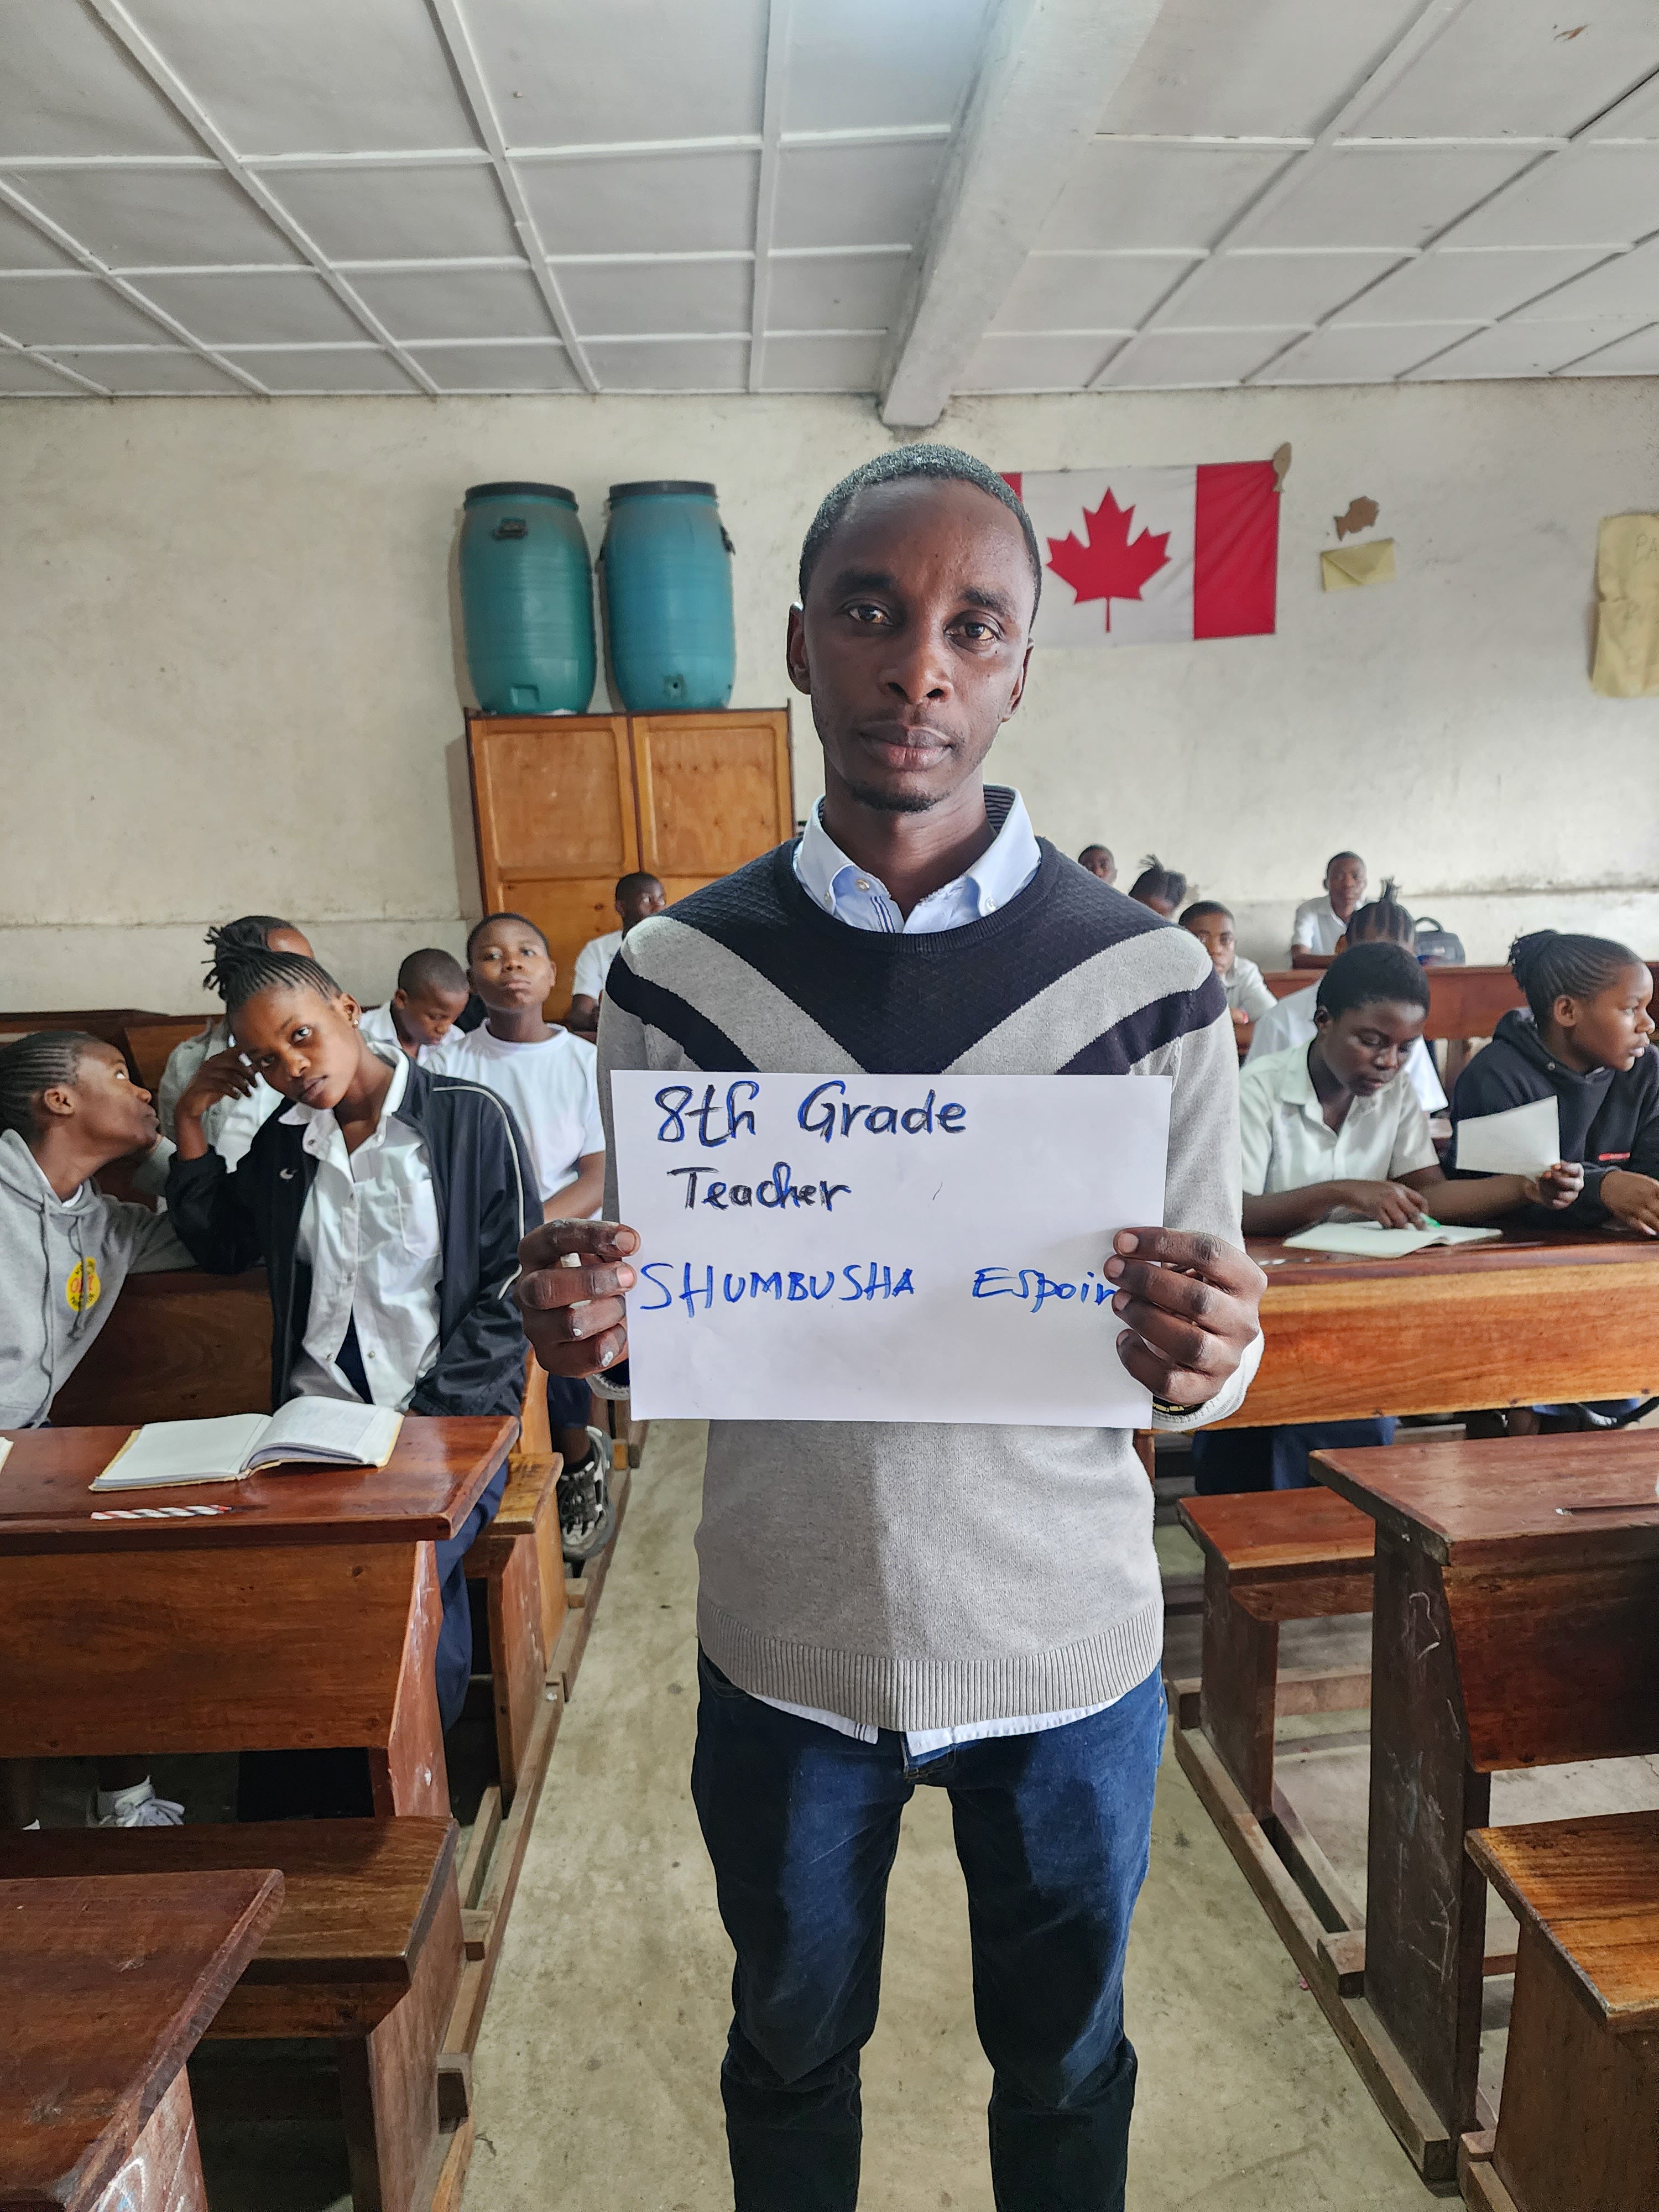 8th Grade
Teacher
SHUMBUSHA Espoir